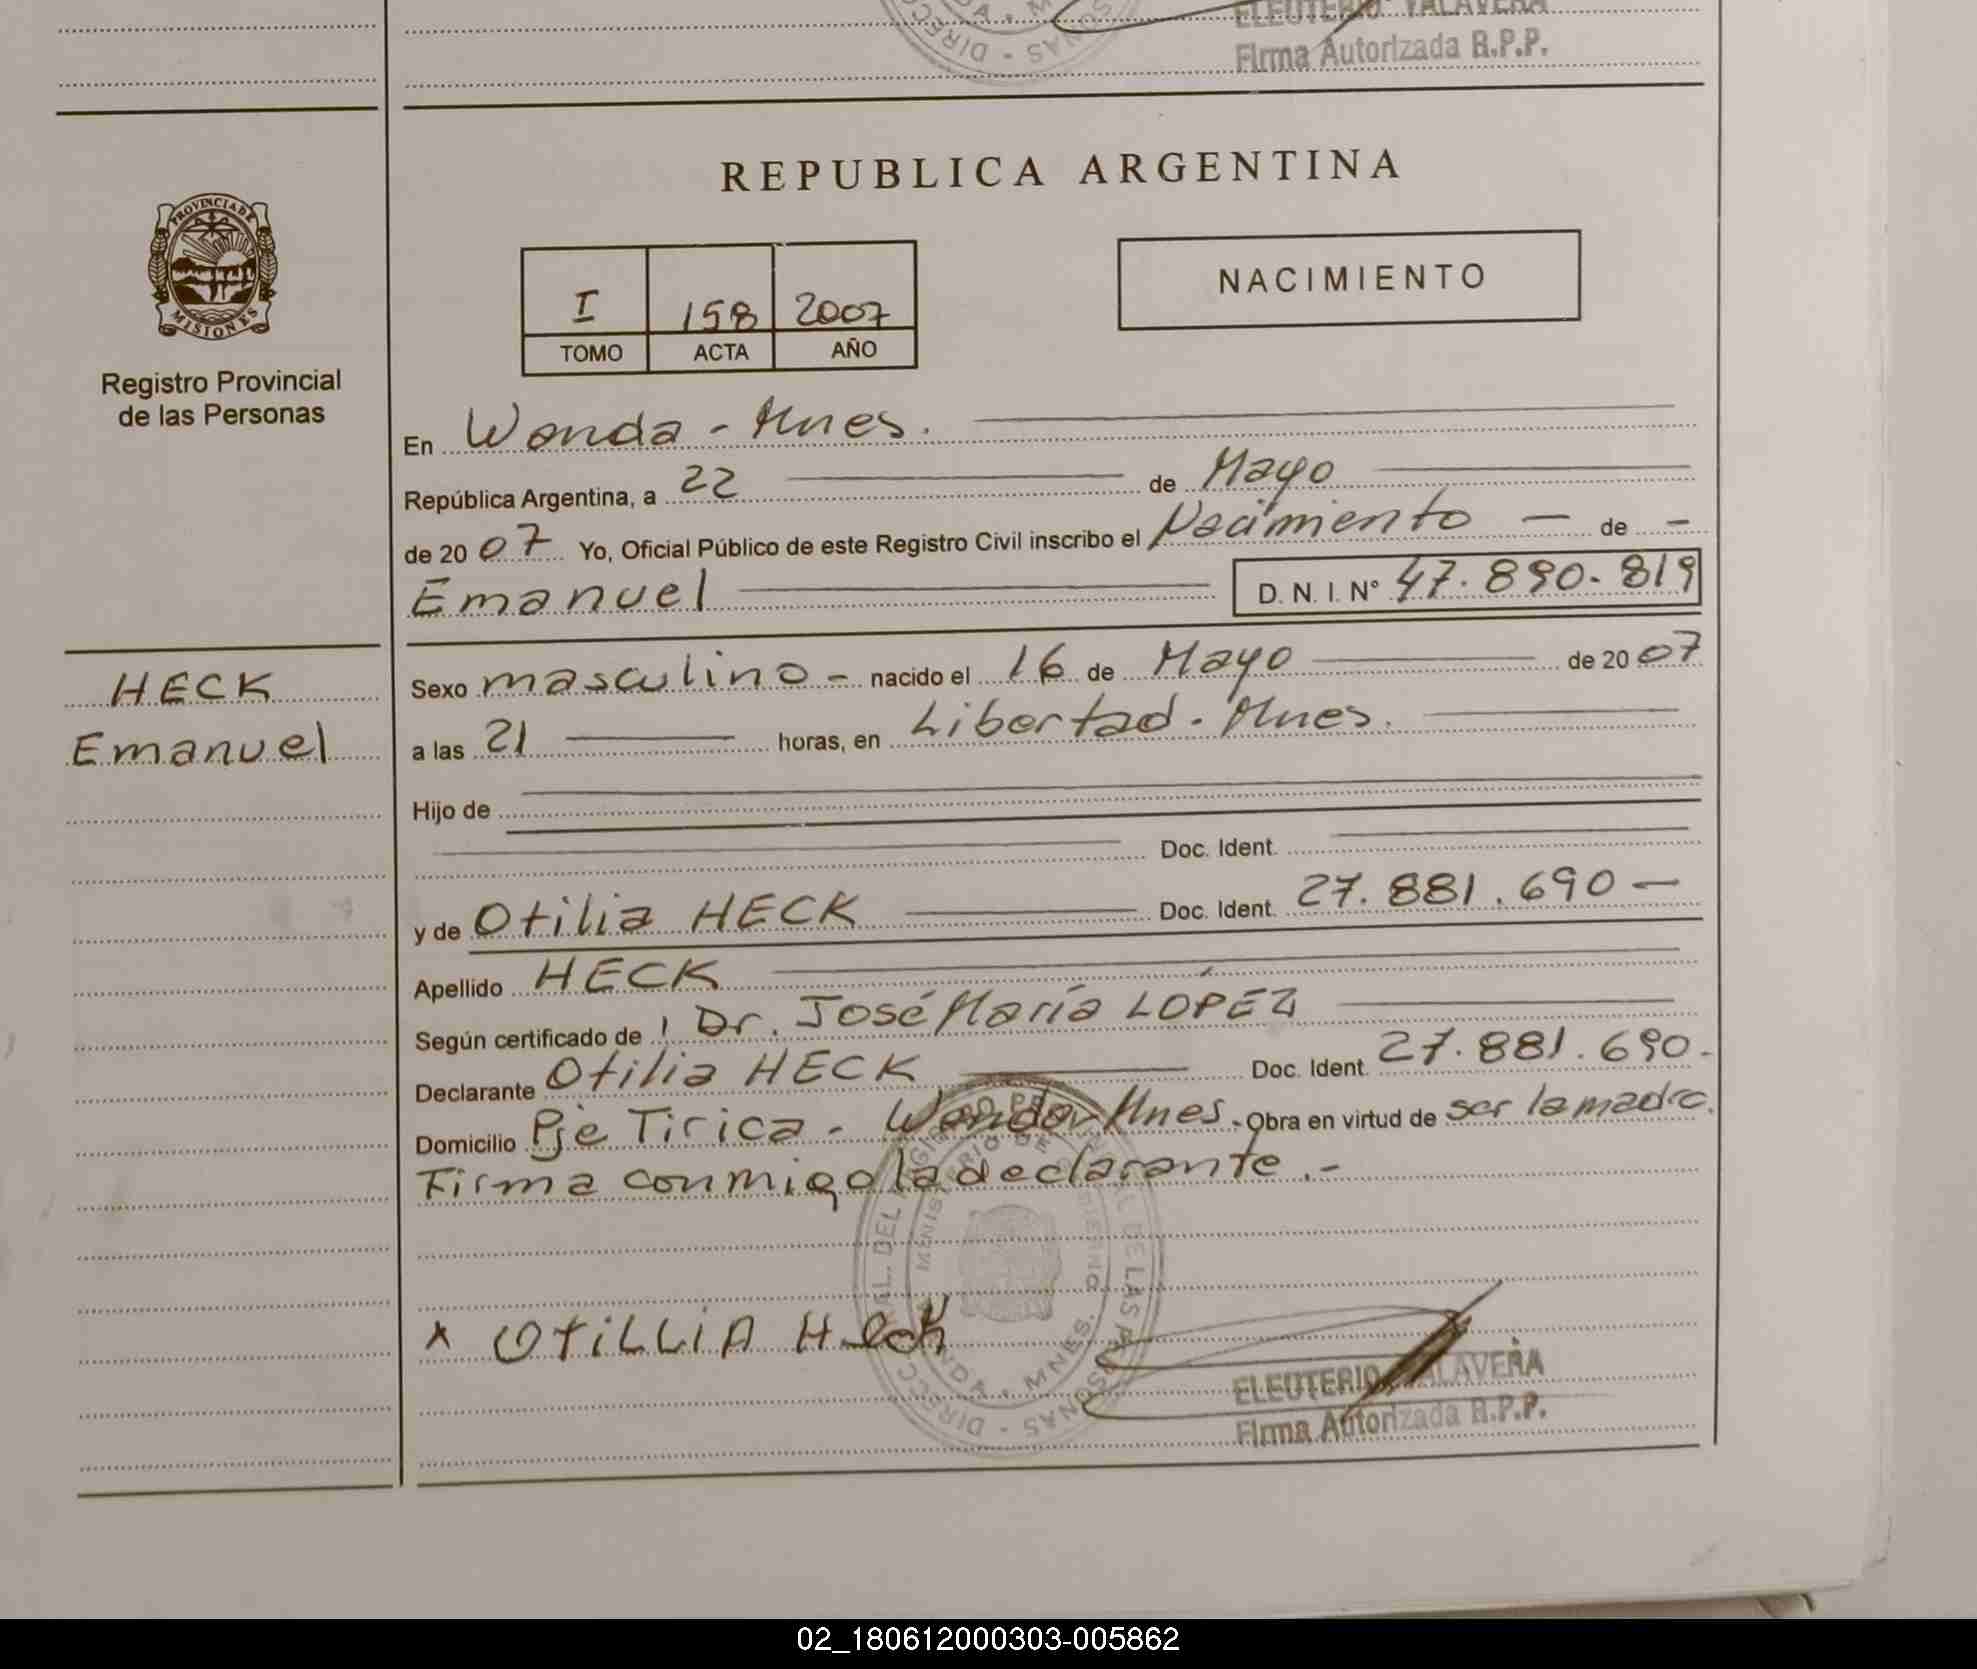 ELEUTERIO TALAVERA
Firma Autorizada R.P.P.
DIRECC
NAS
REPUBLICA ARGENTINA
PROVINCIA DE
MISIONES
Registro Provincial
de las Personas
I 158 2007
TOMO ACTA AÑO
NACIMIENTO
En Wanda - Mnes.
República Argentina, a 22 de Mayo
de 2007 Yo, Oficial Público de este Registro Civil inscribo el Nacimiento — de -
Emanuel D. N. I. Nº 47.890.819
HECK
Emanuel
Sexo masculino - nacido el 16 de Mayo de 2007
a las 21 horas, en Libertad - Mnes.
Hijo de
Doc. Ident.
y de Otilia HECK Doc. Ident. 27.881.690 —
Apellido HECK
Según certificado de Dr. José María LOPEZ
Declarante Otilia HECK Doc. Ident. 27.881.690.-
Domicilio Pje Tirica - Wanda - Mnes. Obra en virtud de ser la madre.
Firma conmigo la declarante.-
x OTiLLiA HecK
MINISTERIO DE GOBIERNO
MNES.
ELEUTERIO TALAVERA
Firma Autorizada R.P.P.
02_180612000303-005862